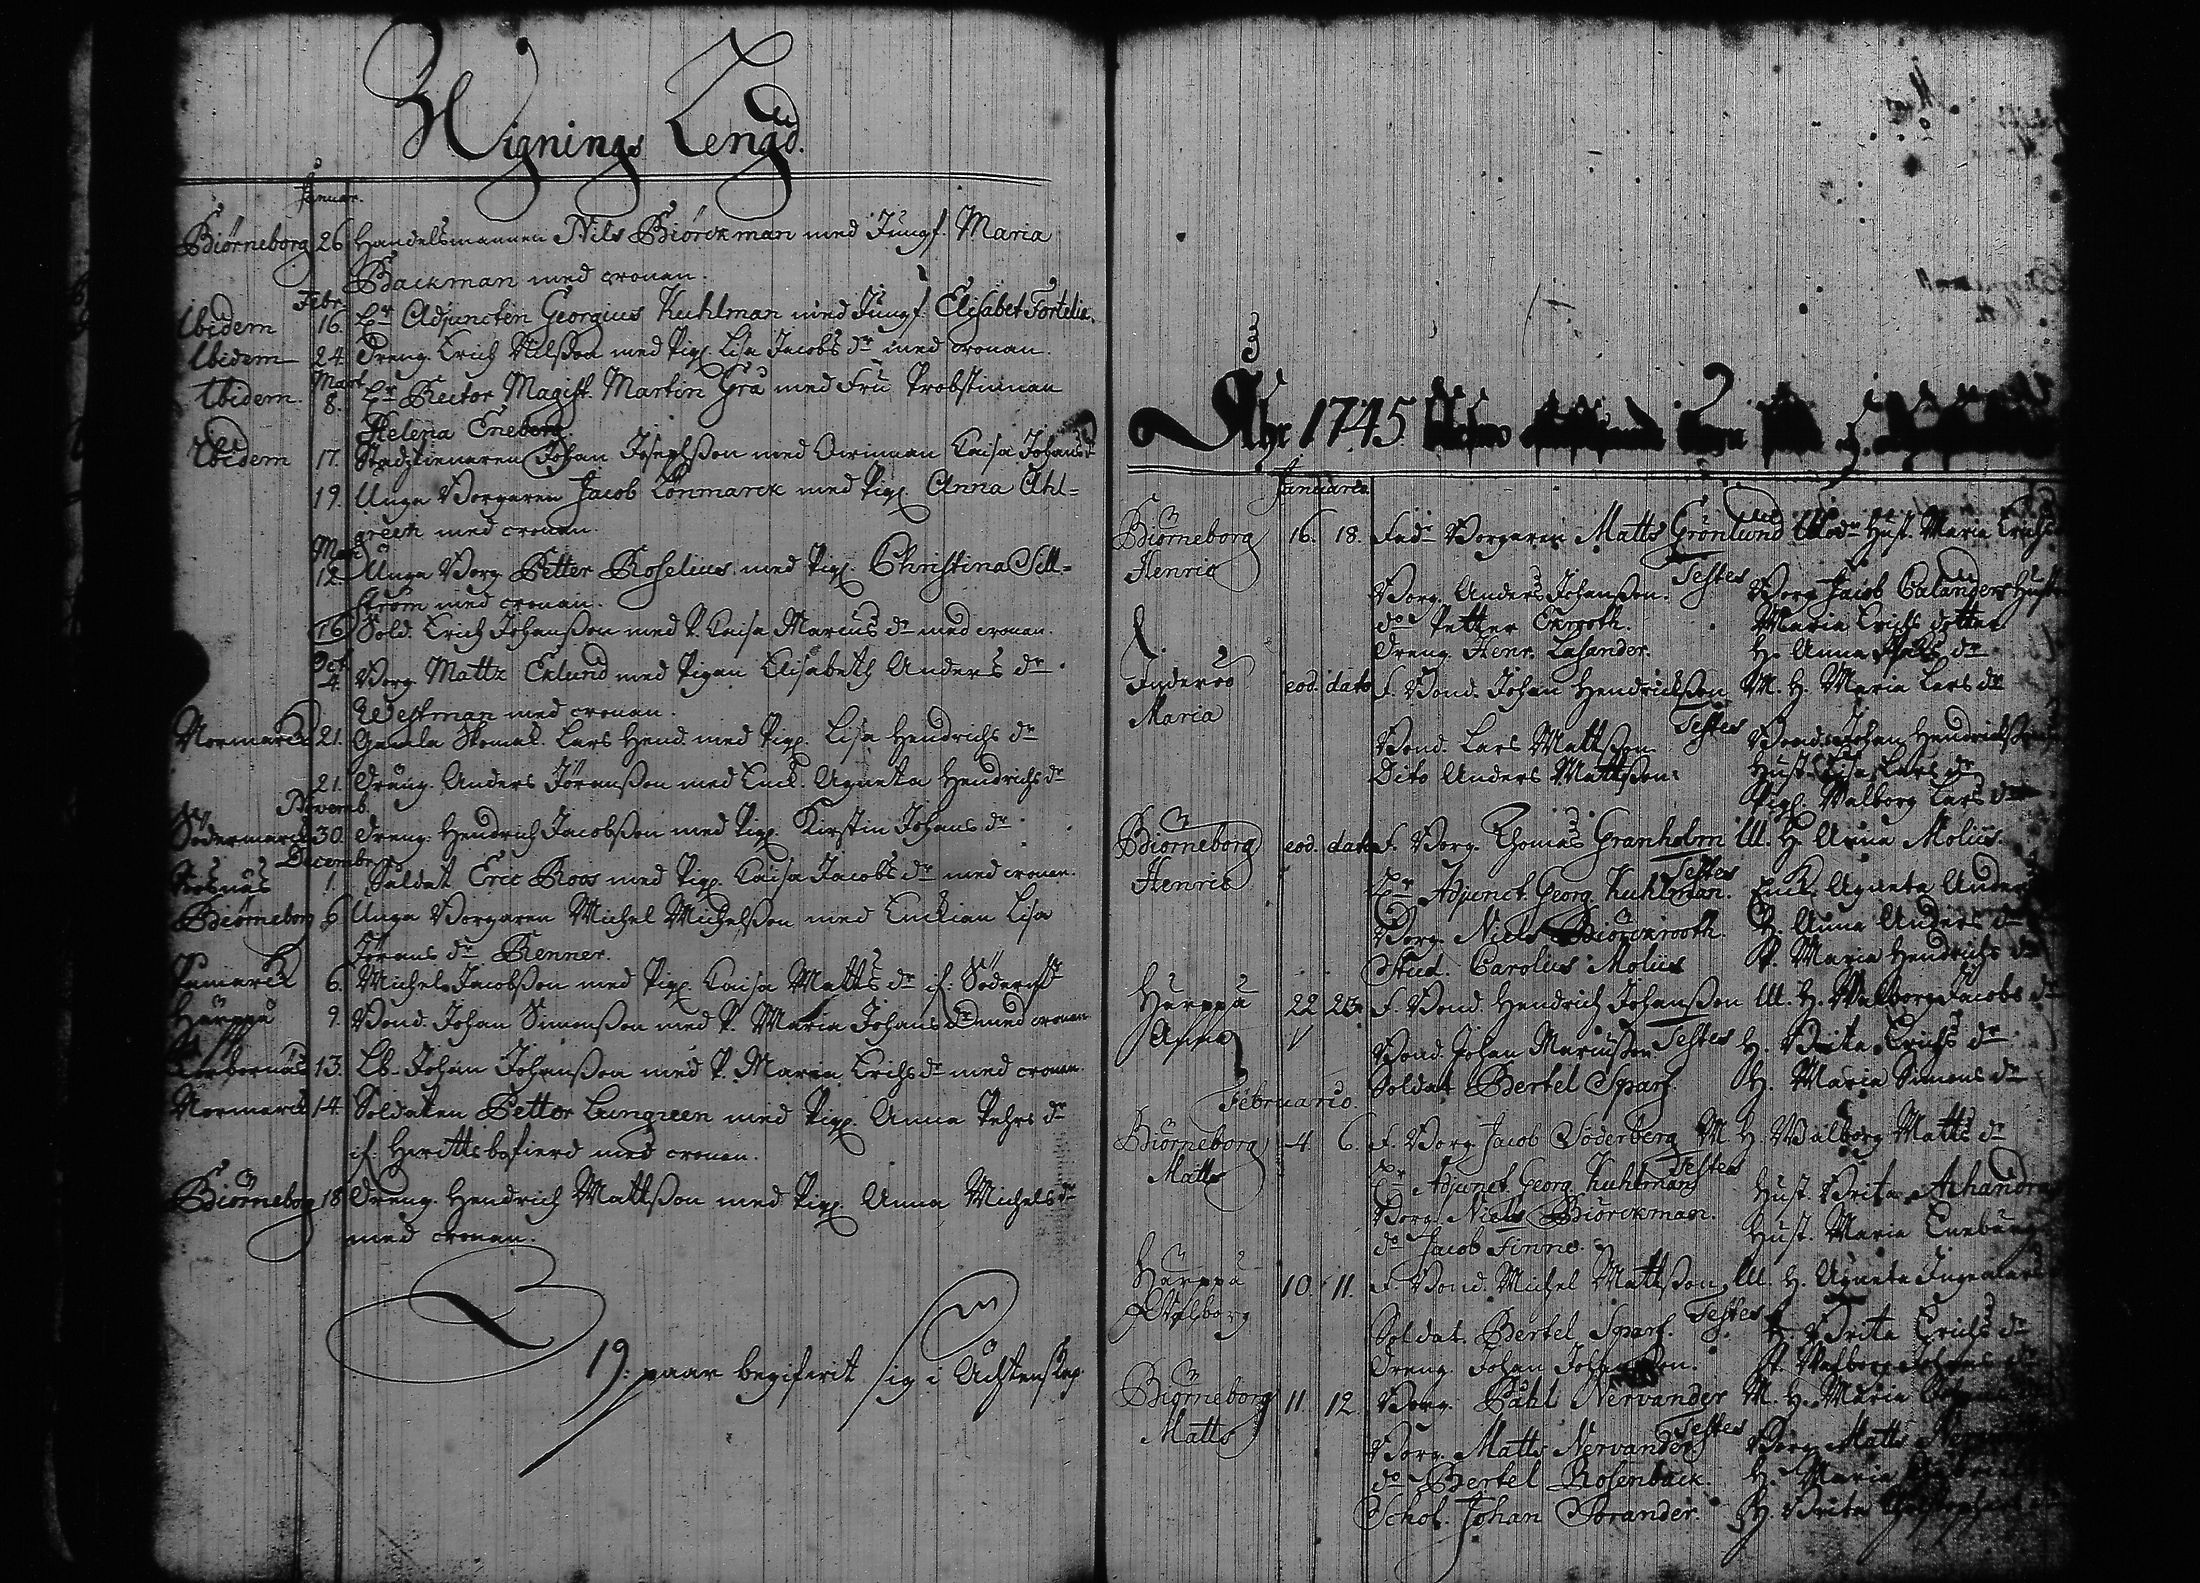 Wignings Lengd.
Januar.
Biörneborg 26 Handelsmannen Nils Biörckman med Jungf. Maria
Backman med cronan.
Febr.
Ibidem 16. Hr Adjuncten Georgius Kuhlman med Jungf. Elisabet Fortelia.
Ibidem 24 Dreng. Erich Nilsson med Pig. Lisa Jacobs dr med cronan.
Mart.
Ibidem. 8. Hr Rector Magist. Martin Grå med Fru Probstinnan
Helena Eneberg
Ibidem 17. Stadztienaren Johan Josephsson med Qwinnan Caisa Johans dr
19. Unga Borgaren Jacob Lönmarck med Pig. Anna Ahl=
green med cronan.
Maj
12 Unga Borg. Petter Roselius med Pig. Christina Sell=
ström med cronan.
16 Sold. Erich Johansson med P. Caisa Marcus dr med cronan.
Oct.
4. Borg. Mattz Eklund med Pigan Elisabeth Anders dr
Westman med cronan.
Normarck 21. Gamla Skomak. Lars Hend. med Pig. Lisa Hendrichs dr
21. Dräng. Anders Jöransson med Enck. Agneta Hendrichs dr
Novemb.
Södermarck 30. Dreng. Hendrich Jacobsson med Pig. Kirstin Johans dr
December
1. Soldat Eric Roos med Pig. Caisa Jacobs dr med cronan.
Biörneborg 6 Unga Borgaren Michel Michelsson med Enckian Lisa
Jörans dr Renner.
6. Michel Jacobsson med Pig. Caisa Matts dr if.
Harppu 9. Bond. Johan Simonsson med P. Maria Johans dr med cronan
13. Johan Johansson med P. Maria Erichs dr med cronan.
Normarck 14. Soldaten Petter Lungreen med Pig. Anna Pehrs dr
if. med cronan.
Biörneborg 18 Dreng. Hendrich Mattsson med Pig. Anna Michels dr
med cronan.
19. paar begifwit sig i Ächtenskap
Åhr 1745
Januario
Biörneborg 16. 18. Fadr Borgaren Matts Grönlund Modr Hust. Maria Erichs
Henric Testes
Borg. Anders Johansson. Borg. Jacob Calanders Hust
do Petter Enrooth. Maria Erichs dotter
Dreng. Henr. Lasander. H. Anna dr
Inderöö eod. dato F. Bond. Johan Hendrichsson M. H. Maria Lars dr
Maria Testes
Bond. Lars Mattsson Bond. Johan Hendrichsson
Dito Anders Mattsson. Hust. Lisa Lars dr
Pig. Walborg Lars dr
Biörneborg eod. dato F. Borg. Thomas Granholm M. H. Anna Molius.
Henric Testes
Hr Adjunct. Georg. Kuhlman. Enck. Agneta Anders
Borg. Niels Biörckrooth. H. Anna Anders dr
Stud. Carolus Molius P. Maria Hendrichs dr
Harppu 22 23. F. Bond. Hendrich Johansson M. H. Walborg Jacobs dr
Anna Testes
Bond. Johan Mariusson H. Brita Erichs dr
Soldat Bertel Sparf. H. Maria Simons dr
Februario.
Biörneborg 4. 6. F. Borg. Jacob Söderberg M H. Walborg Matts dr
Matts Testes
Hr Adjunct. Georg. Kuhlman Hust. Brita
Borg. Niels Biörckman. Hust. Maria
do Jacob Finne.
Harppu 10. 11. F. Bond. Michel Mattsson M. H. Agneta
Walborg Testes
Soldat. Bertel Sparf. H. Brita Erichs dr
Dreng. Johan Johansson. P. Walborg Johans dr
Biörneborg 11. 12. Borg. Påhl Nervander M. H. Maria
Matts Testes
Borg. Matts Nervander Borg. Matts
do Bertel Rosenback. H. Maria
Schol. Johan Sorander. H. Brita Christophers